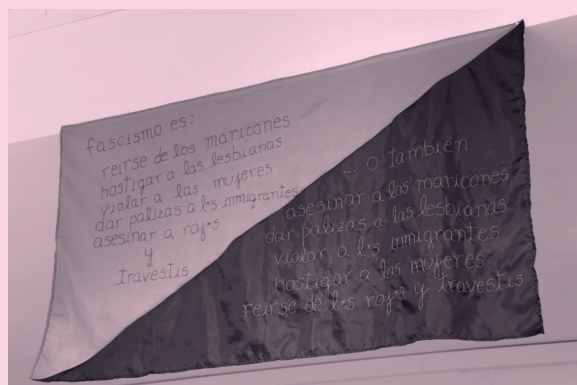 fascismo es:
reirse de los maricones
hostigar a las lesbianas
violar a las mujeres
dar palizas a l*s immigrantes
asesinar a roj*s
y
travestis
... o también
asesinar a los maricones
dar palizas a las lesbianas
violar a l*s immigrantes
hostigar a las mujeres
reirse de l*s roj*s y travestis